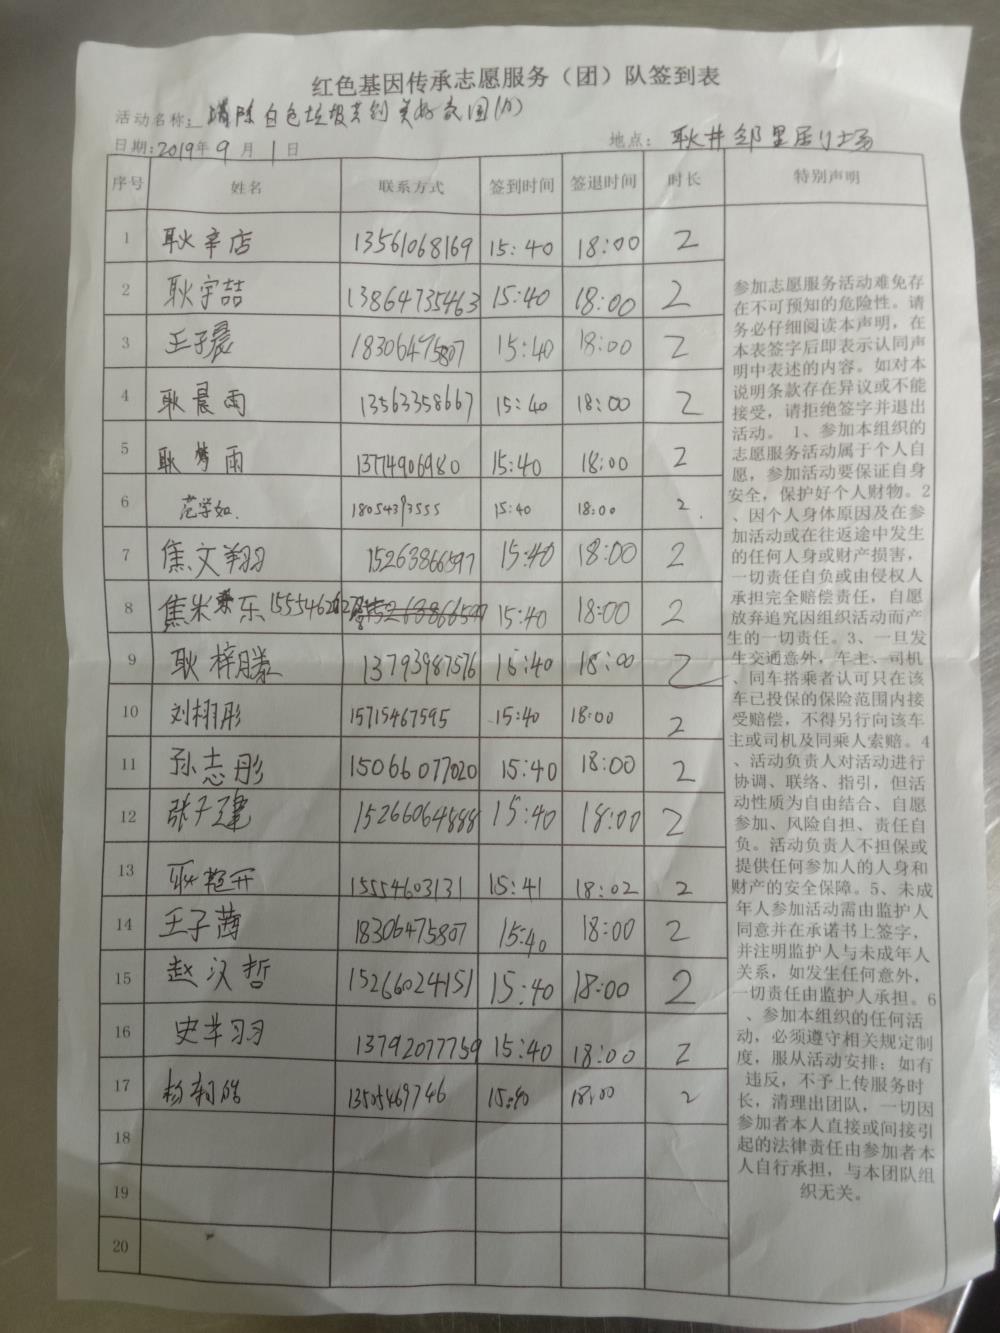 红色基因传承志愿服务（团）队签到表
活动名称：清除白色垃圾共创美好家园(八)
日期:2019年9月1日 地点：耿井邻里剧场
序号 姓名 联系方式 签到时间 签退时间 时长 特别声明
1 耿辛店 13561068169 15:40 18:00 2
2 耿宇喆 13864735463 15:40 18:00 2
3 王子晨 18306475807 15:40 18:00 2
4 耿晨雨 13563358667 15:40 18:00 2
5 耿梦雨 13774906980 15:40 18:00 2
6 范学如. 15:40 18:00 2.
7 焦文翔 15263866597 15:40 18:00 2
8 焦米乐 15:40 18:00 2
9 耿梓腾 13793987576 15:40 18:00 2
10 刘栩彤 15715467595 15:40 18:00 2
11 孙志彤 15066077020 15:40 18:00 2
12 张子建 15266064888 15:40 18:00 2
13 耿 开 15554603131 15:41 18:02 2
14 王子茜 18306475807 15:40 18:00 2
15 赵汉哲 15266024151 15:40 18:00 2
16 史 羽 13792077759 15:40 18:00 2
17 杨 皓 13505469746 15:40 18:00 2
18
19
20
参加志愿服务活动难免存
在不可预知的危险性。请
务必仔细阅读本声明，在
本表签字后即表示认同声
明中表述的内容。如对本
说明条款存在异议或不能
接受，请拒绝签字并退出
活动。 1、参加本组织的
志愿服务活动属于个人自
愿，参加活动要保证自身
安全，保护好个人财物。2
、因个人身体原因及在参
加活动或在往返途中发生
的任何人身或财产损害，
一切责任自负或由侵权人
承担完全赔偿责任，自愿
放弃追究因组织活动而产
生的一切责任。3、一旦发
生交通意外，车主、司机
、同车搭乘者认可只在该
车已投保的保险范围内接
受赔偿，不得另行向该车
主或司机及同乘人索赔。4
、活动负责人对活动进行
协调、联络、指引，但活
动性质为自由结合、自愿
参加、风险自担、责任自
负。活动负责人不担保或
提供任何参加人的人身和
财产的安全保障。5、未成
年人参加活动需由监护人
同意并在承诺书上签字，
并注明监护人与未成年人
关系，如发生任何意外，
一切责任由监护人承担。6
、参加本组织的任何活
动，必须遵守相关规定制
度，服从活动安排；如有
违反，不予上传服务时
长，清理出团队，一切因
参加者本人直接或间接引
起的法律责任由参加者本
人自行承担，与本团队组
织无关。